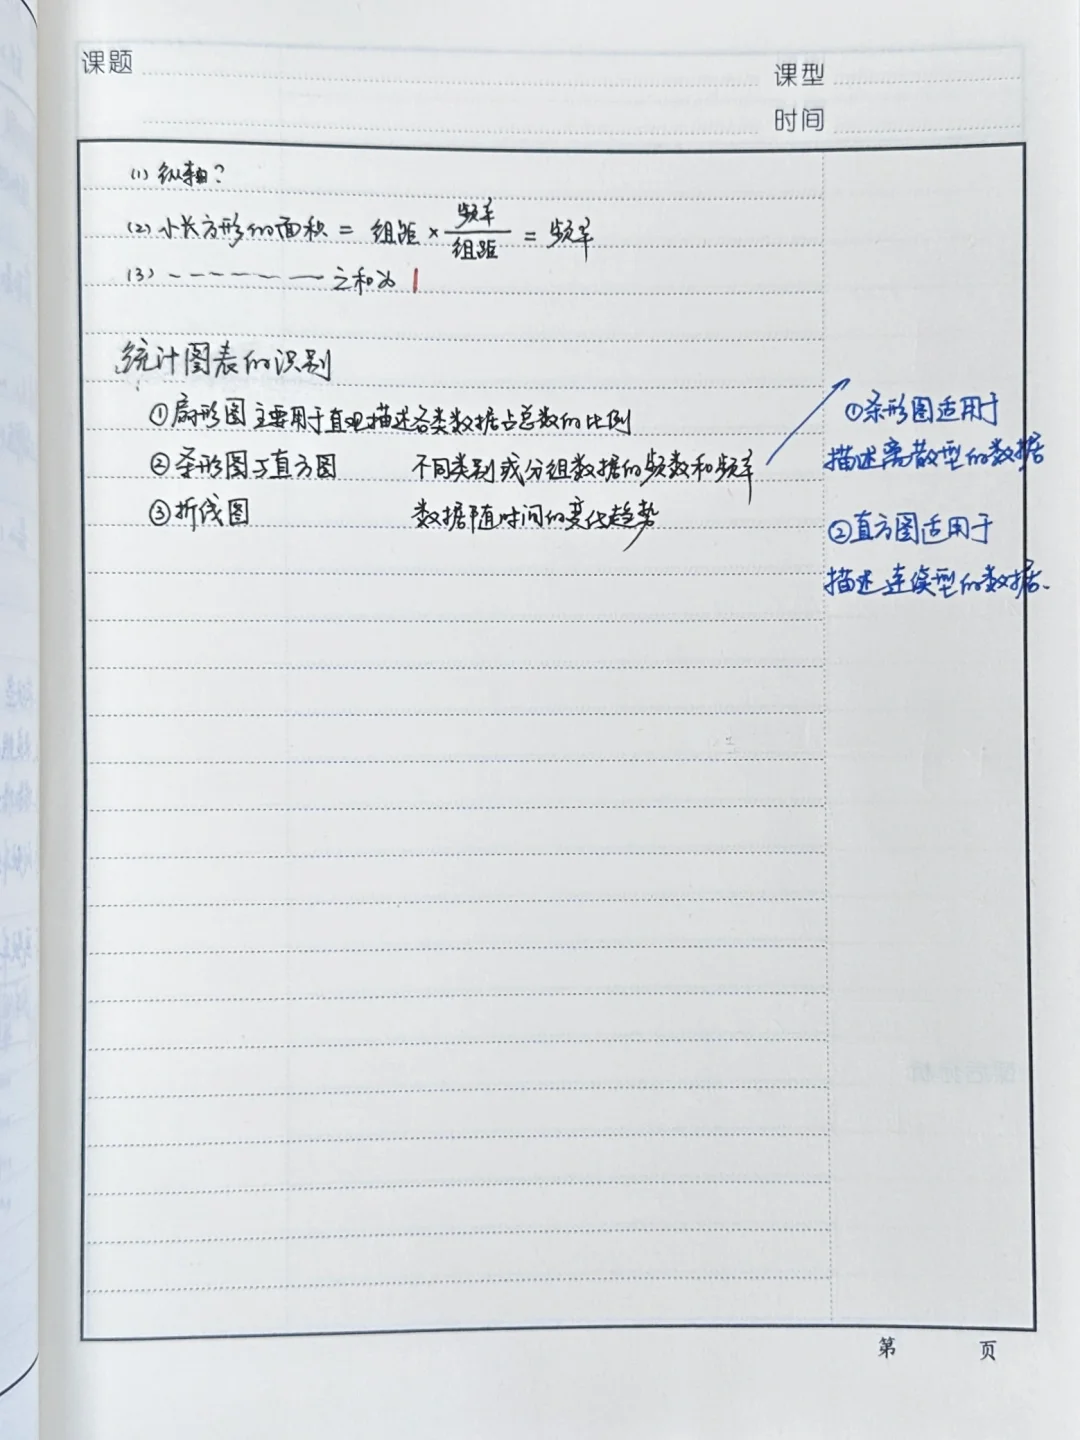 课题
课型
时间
(1) 纵轴?
(2) 小长方形的面积 = 组距 × 频率/组距 = 频率
(3) ——————— 之和为 1
统计图表的识别
①扇形图 主要用于直观描述各类数据占总数的比例
②条形图与直方图 不同类别或分组数据的频数和频率
③折线图 数据随时间的变化趋势
①条形图适用于
描述离散型的数据
②直方图适用于
描述连续型的数据.
第 页